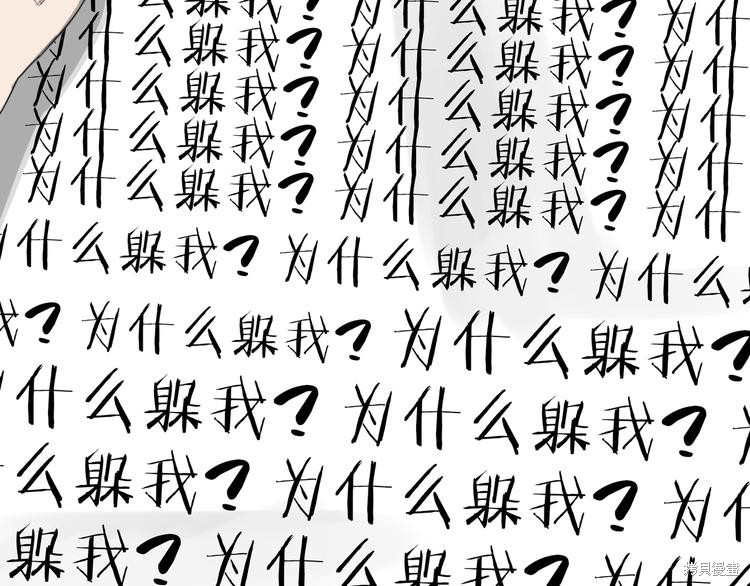 为什么躲我？ 为什么躲我？ 为什么
为什么躲我？ 为什么躲我？ 为什
为什么躲我？ 为什么躲我？ 为什
为什么躲我？ 为什么躲我？ 为什
为什么躲我？ 为什么躲我？ 为什
什么躲我？ 为什么躲我？ 为什么
我？ 为什么躲我？ 为什么躲我？
什么躲我？ 为什么躲我？
么躲我？ 为什么躲我？ 为什
躲我？ 为什么躲我？ 为
拷貝漫畫